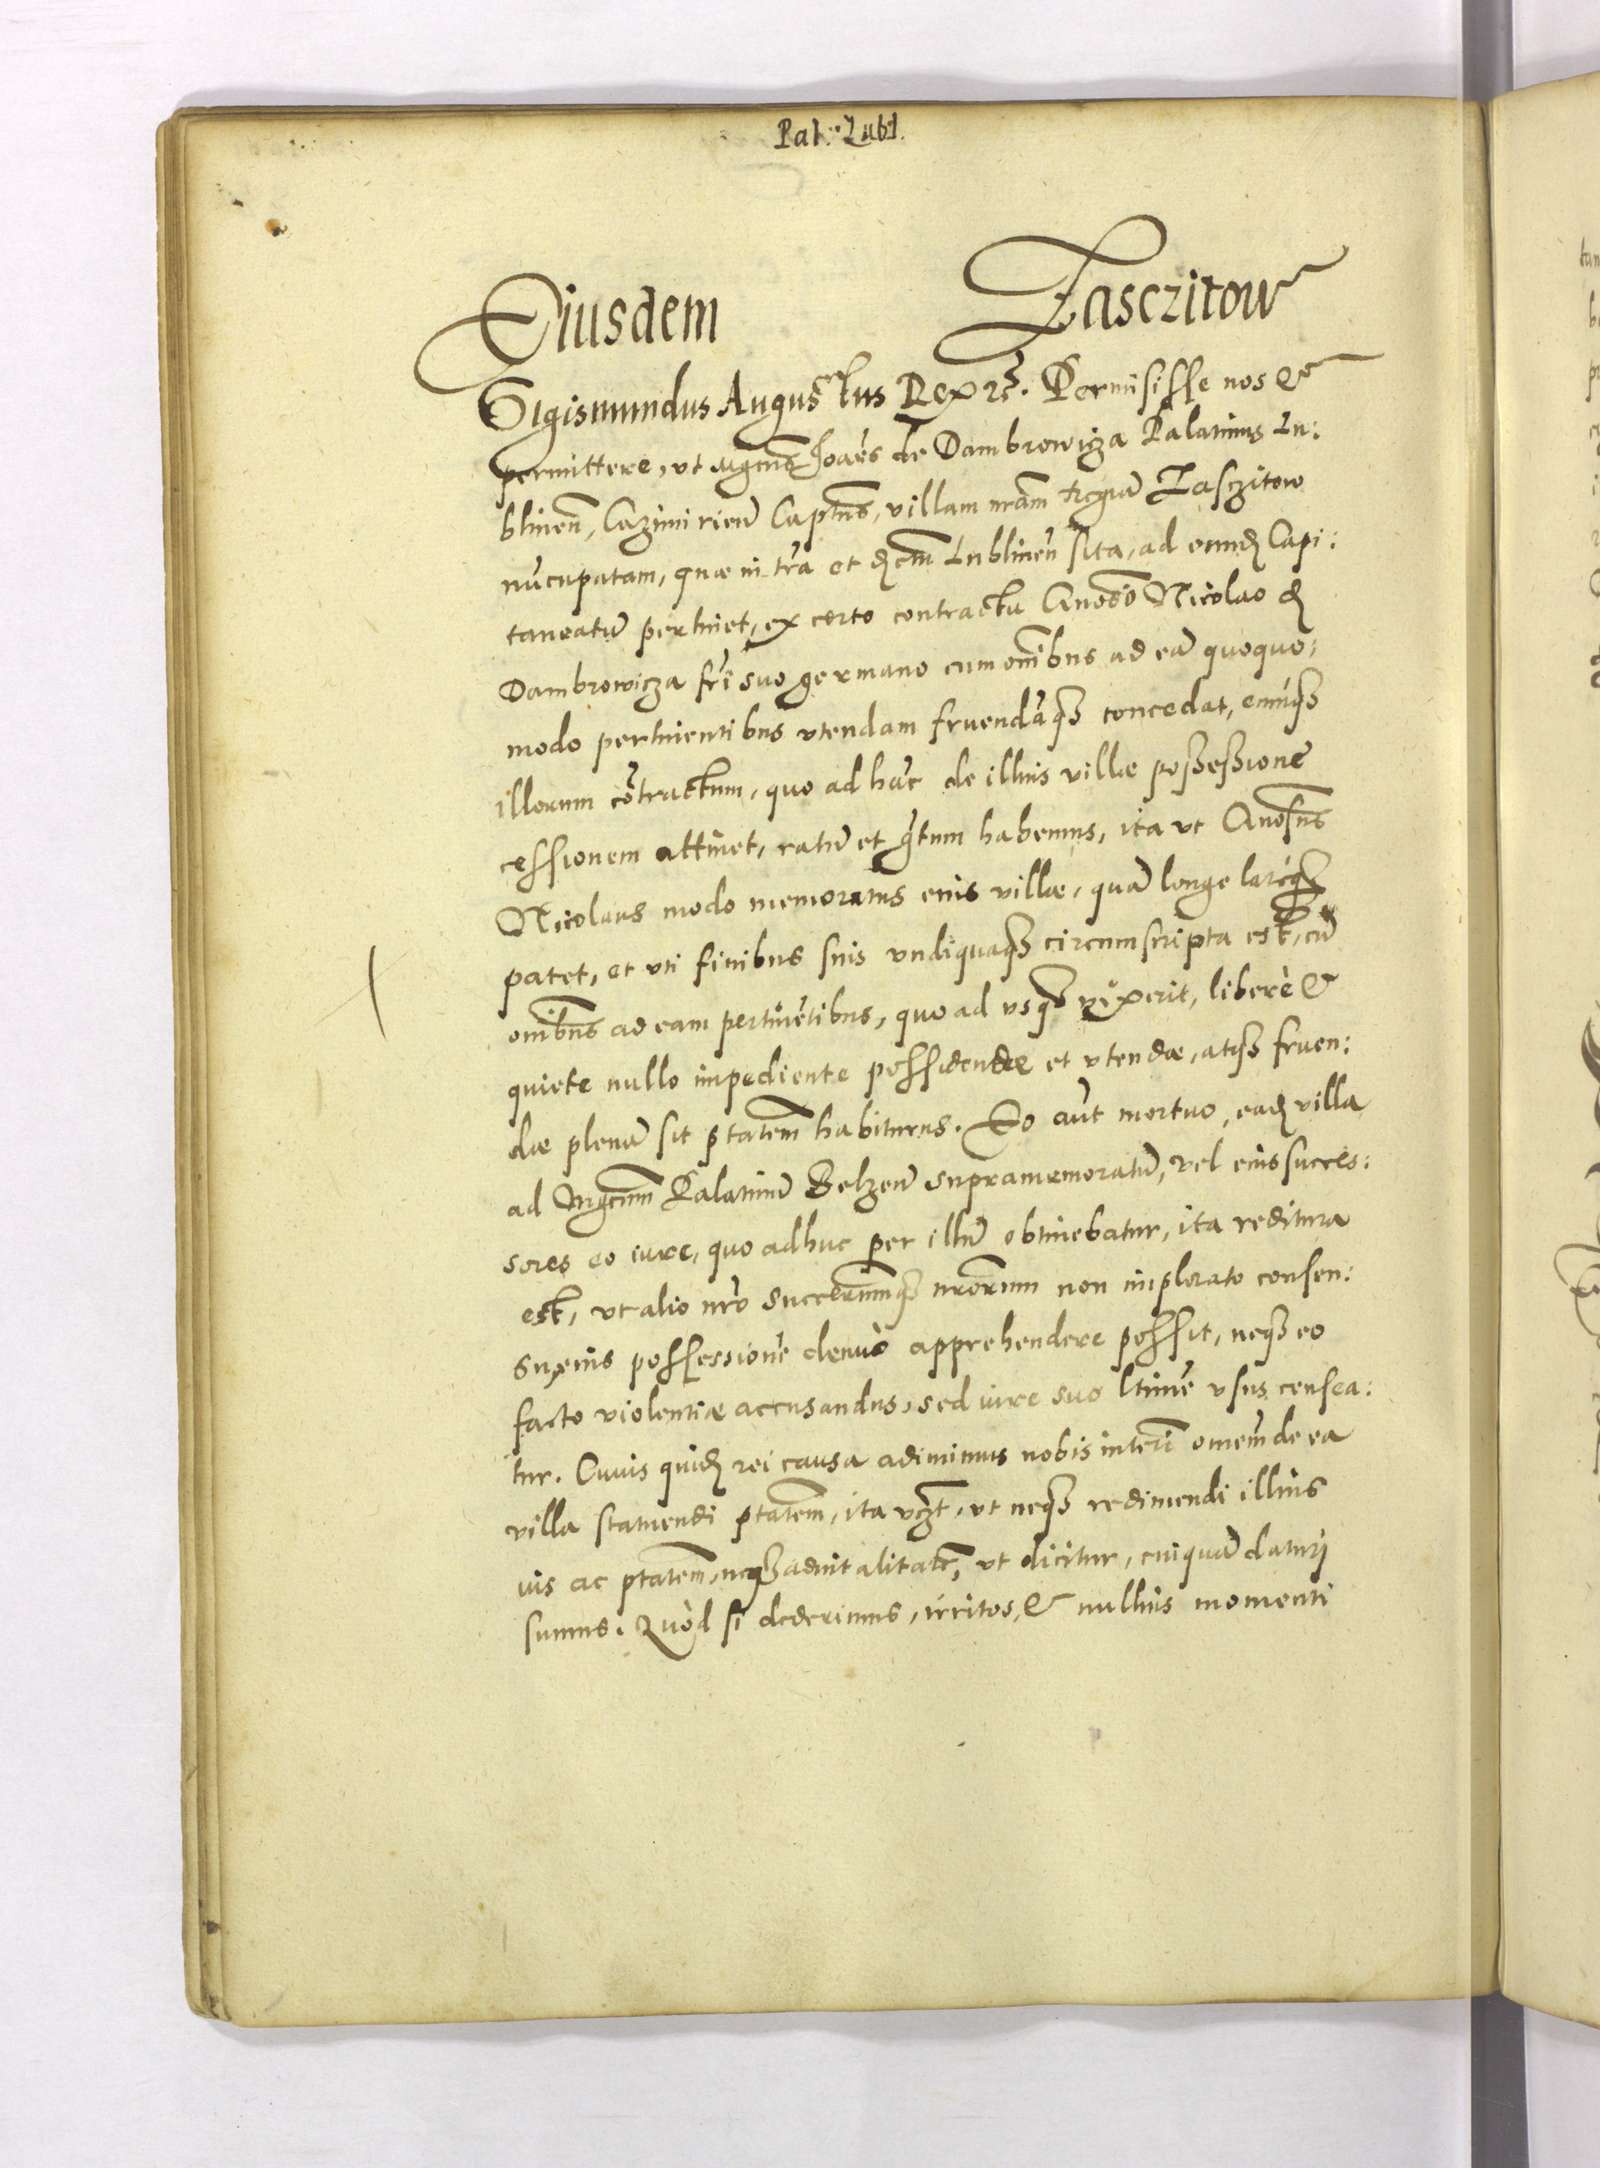 Pal: Lubl.
Eiusdem Zasczitow
Sigismundus Augustus Rex etc. Permisisse nos et
permittere, ut Mgcus Joães de Dambrowicza Palatinus Lu:
blineñ, Cazimirieñ Capñs, villam nrãm Regiã Zasczitow
nũcupatam, quæ in trã et dcm Lublineñ sita, ad eund Capi:
taneatũ pertinet, ex certo contractu Gnõso Nicolao d
Dambrowicza frĩ suo germano cum omĩbus ad eã quoquo,
modo pertinentibus vtendam fruendãqȝ concedat, eumqȝ
illorum cõtractum, quo ad hãc de illius villæ possessionẽ
cessionem attinet, ratũ et grtum habemus, ita ut Gnõsus
Nicolaus modo memoratus eius villæ, quã longe lateqȝ
patet, et uti finibus suis undiquaqȝ circumscripta est, cũ
omĩbus ad eam pertinẽtibus, quo ad usqȝ vixerit, liberè et
quiete nullo impediente possidendæ et vtendæ, atqȝ fruen:
dæ plenã sit ptatem habiturus. Eo aũt mortuo, ead villa
ad Mgcum Palatinũ Belzeñ supramemoratũ, vel eius succes:
sores eo iure, quo adhuc per illũ obtinebatur, ita reditura
est, ut alio nrõ succerumqȝ nrorum non implorato consen:
su, eius possessionẽ denuò apprehendere possit, neqȝ eo
facto violentiæ accusandus, sed iure suo ltime usus censea:
tur. Cuius quid rei causa adimimus nobis interĩ omem de ea
villa statuendi ptatem, ita vzt, ut neqȝ redimendi illius
ius ac ptatem, neqȝ aduitalitatẽ, ut dicitur, cuiquã daturi
sumus. Quòd si dederimus, irritos, et nullius momenti